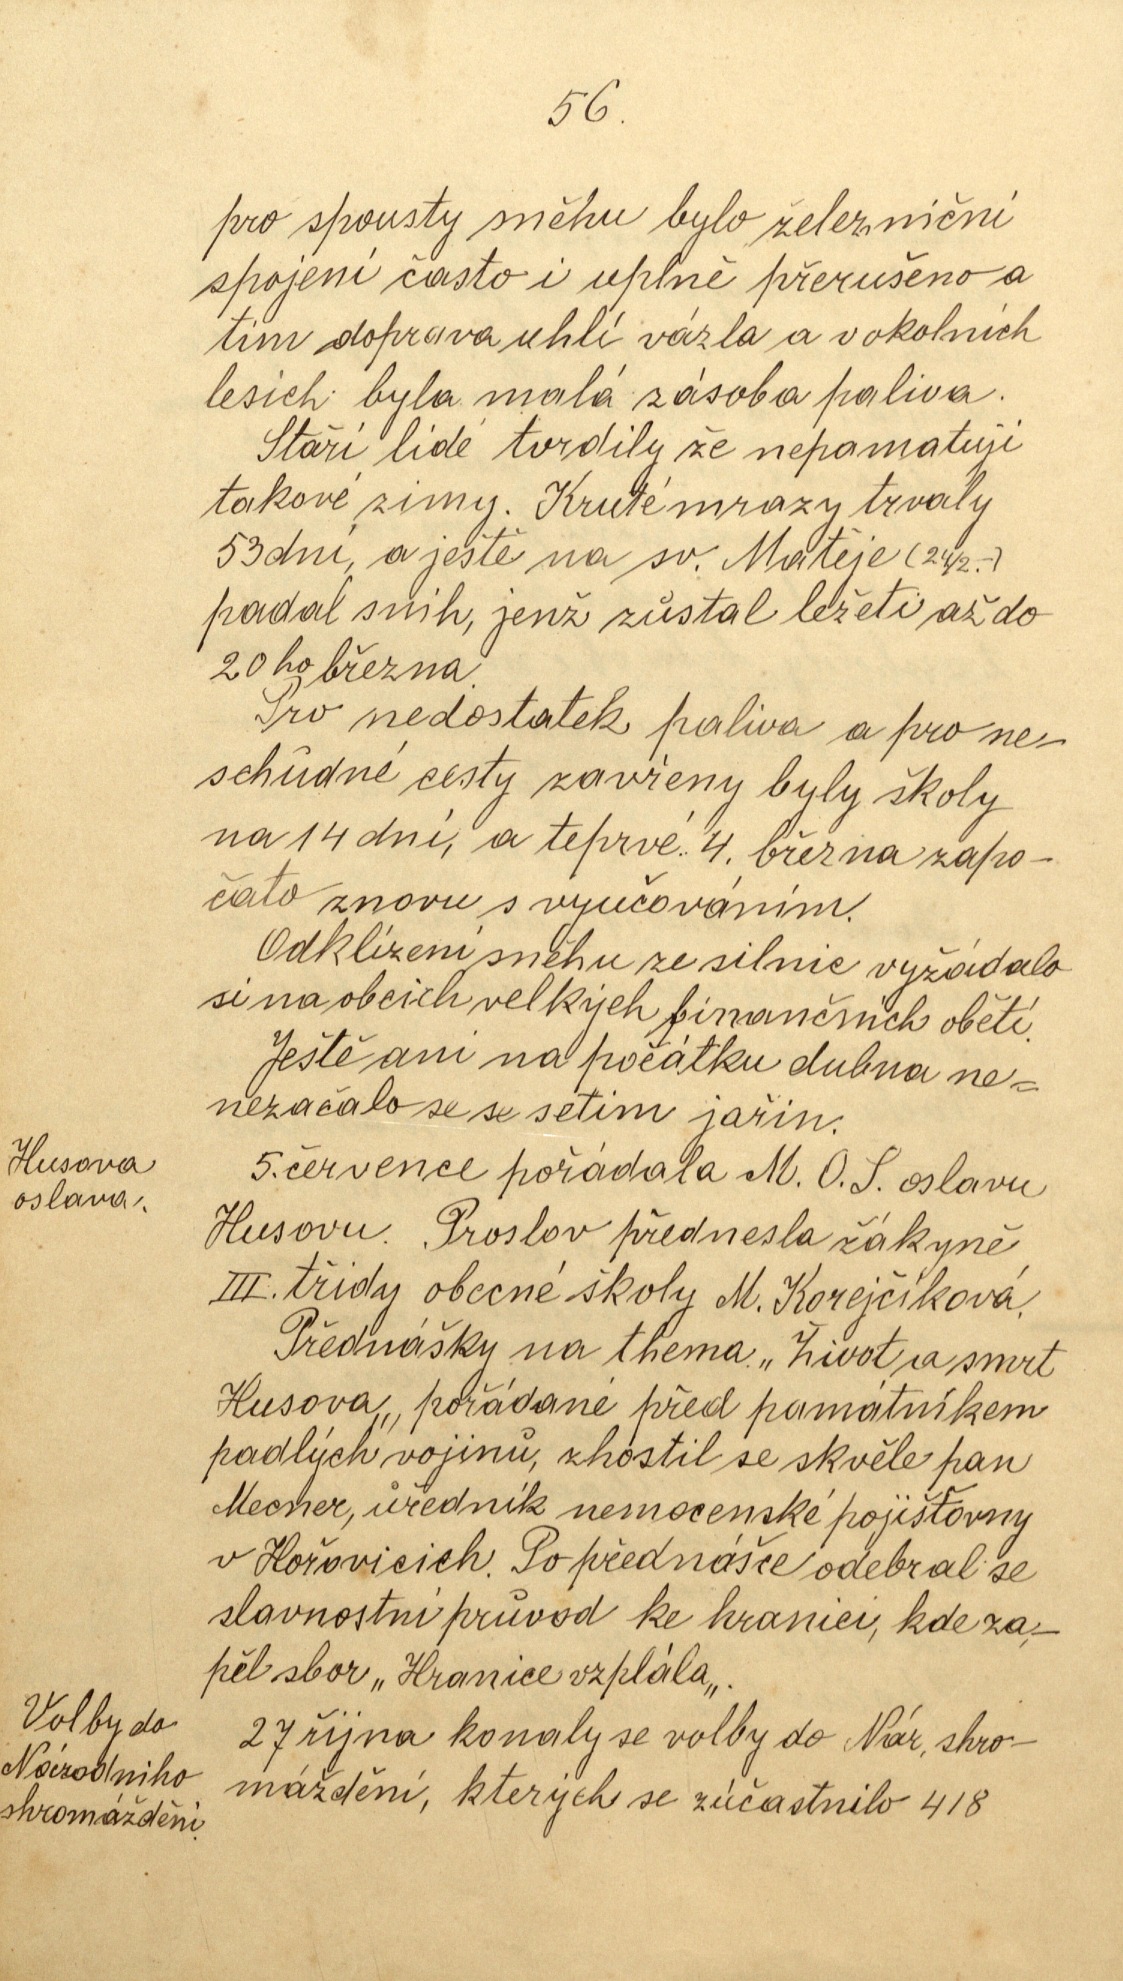 56.
pro spousty sněhu bylo železniční
spojení často i uplně přerušeno a
tím doprava uhlí vázla a v okolních
lesích byla malá zásoba paliva.
Staří lidé tvrdily že nepamatují
takové zimy. Kruté mrazy trvaly
53 dní, a ještě na sv. Matěje (24/2.-)
padal snih, jenž zůstal ležeti až do
20 ho března.
Pro nedostatek paliva a pro ne-
schůdné cesty zavřeny byly školy
na 14 dní, a teprvé 4. března zapo-
čato znovu s vyučováním.
Odklízení sněhu ze silnic vyžádalo
si na obcích velkých finančních obětí.
Ještě ani na počátku dubna ne=
nezačalo se se setím jařin.
Husova
oslava.
5. července pořádala M. O. S. oslavu
Husovu. Proslov přednesla žákyně
III. třídy obecné školy M. Korejčíková.
Přednášky na thema „Život a smrt
Husova„, pořádané před památníkem
padlých vojínů, zhostil se skvěle pan
Mecner, úředník nemocenské pojišťovny
v Hořovicích. Po přednášce odebral se
slavnostní průvod ke hranici, kde za-
pěl sbor „Hranice vzplála„.
Volby do
Národního
shromáždění.
27 října konaly se volby do Nár. shro-
máždění, kterých se zúčastnilo 418